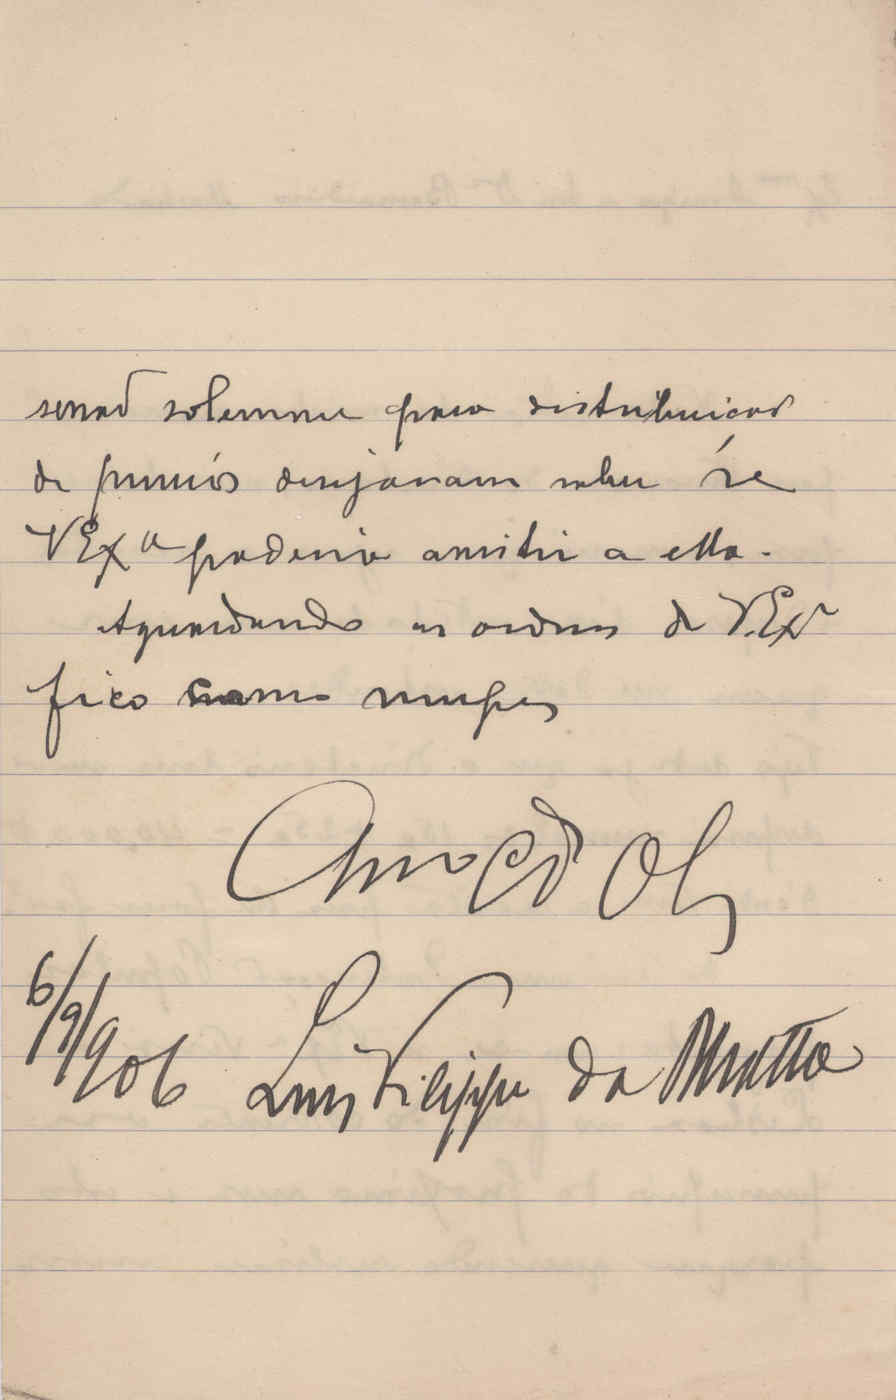 sessão solemne para distribuição
de premios desejavam saber se
V Exª poderia assistir a ella.
Aguardando as ordens de V. Exª
fico como sempre
Amº
6/9/906 Luis Filippe da Matta